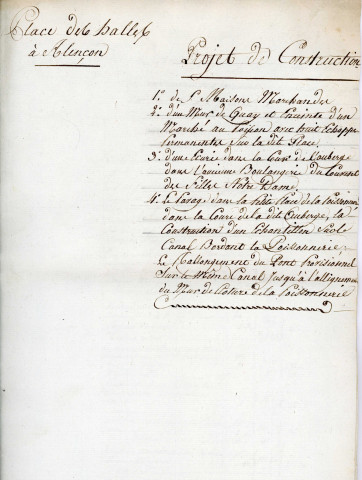 Place des halles
à Alençon
Projet de Construction
1° de 8 Maisons Marchandes
2° d'un Mur de Quay et Enceinte d'un
Marché au Poisson avec huit Echoppes
permanentes Sur la dite Place
3° d'une Ecurie dans la Cour de l'auberge
dans l'ancienne Boulangerie du Couvent
des filles Notre Dame
4° Le Pavage dans la Petite Place de la Poissonnerie
dans la Cour de la dite Auberge, la
Construction d'un Echantillon Sur le
Canal Bordant la Poissonnerie
Le Rallongement du Pont Provisionnel
Sur le même Canal Jusqu'à l'allignement
du Mur de Cloture de la Poissonnerie